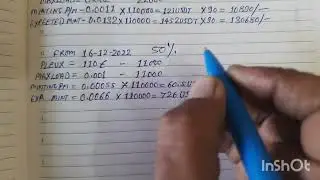 MINTING P/M - 0.0011 × 110000 = 121USDT × 90 = 10890/-
EXPECTED MNT - 0.0132 × 110000 = 1452USDT × 90 = 130680/-
" FROM 16-12-2022 50%
PLEUX = 110€ - 11000
MAX LOAD = 0.001 - 11000
MINTING P/M = 0.00055 × 110000 = 60.5U
EXP. MINT = 0.0066 × 110000 = 726US
InShot